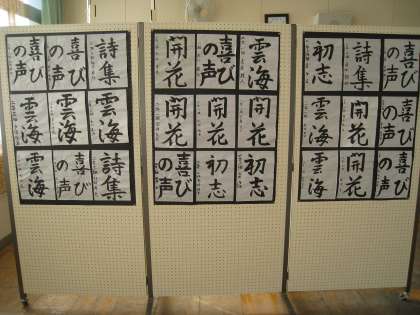 喜び
の声
喜び
の声
詩集
雲海
雲海
雲海
雲海
喜び
の声
詩集
開花
喜び
の声
雲海
開花
開花
開花
喜び
の声
初志
初志
初志
詩集
喜び
の声
雲海
開花
喜び
の声
雲海
開花
喜び
の声